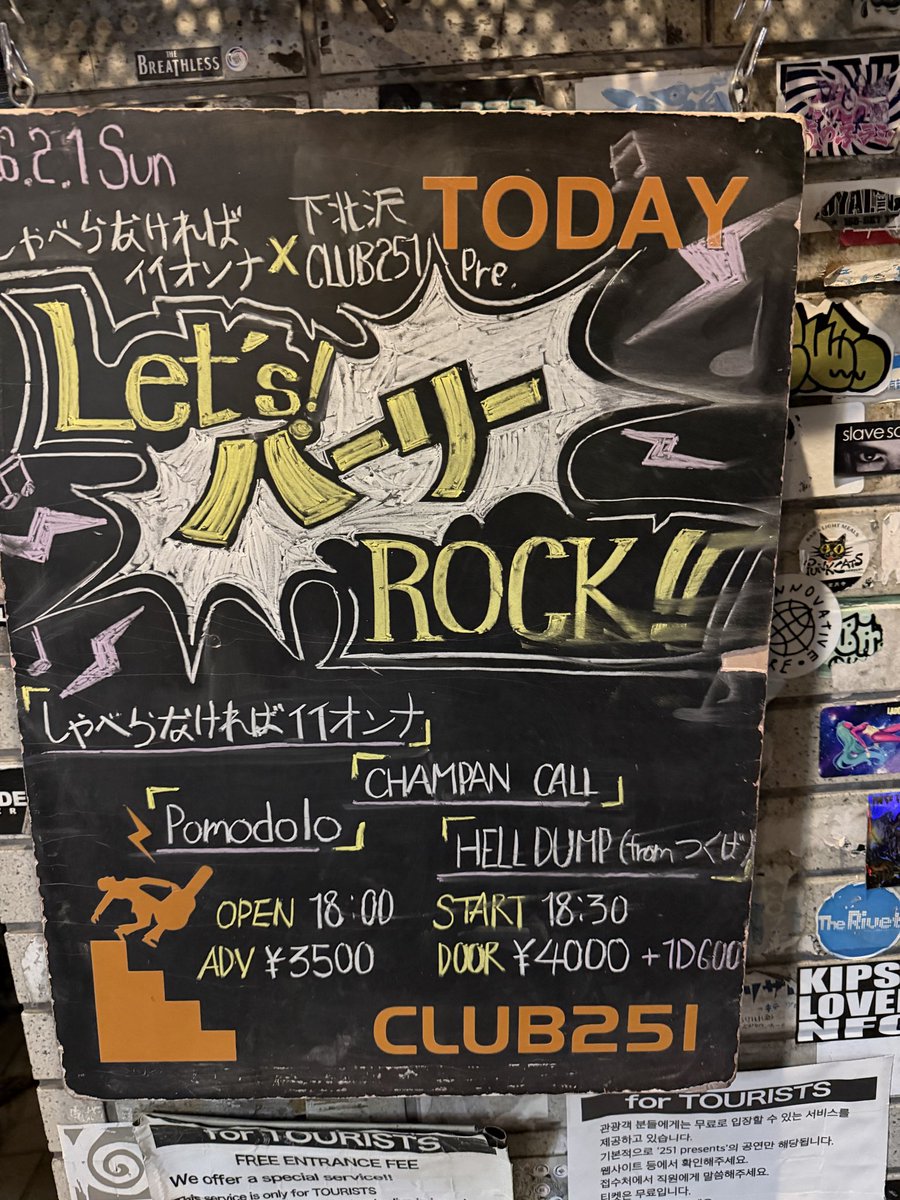 THE
BREATHLESS
6.2.1 Sun
TODAY
しゃべらなければ
イイオンナ
×
下北沢
CLUB251
Pre.
Let's!
パーリー
ROCK!!
「しゃべらなければイイオンナ」
「CHAMPAN CALL」
「Pomodolo」
「HELL DUMP (from つくば)」
OPEN 18:00 START 18:30
ADV ¥3500 DOOR ¥4000 +1D600
CLUB251
slave
PUNKCATS
INNOVATIVE
The Rivet
KIPS
LOVE
NFO
for TOURISTS
FREE ENTRANCE FEE
We offer a special service!!
This service is only for TOURISTS
for TOURISTS
관광객 분들에게는 무료로 입장할 수 있는 서비스를
제공하고 있습니다.
기본적으로 '251 presents'의 공연만 해당됩니다.
웹사이트 등에서 확인해주세요.
접수처에서 직원에게 말씀해주세요.
티켓은 무료입니다.